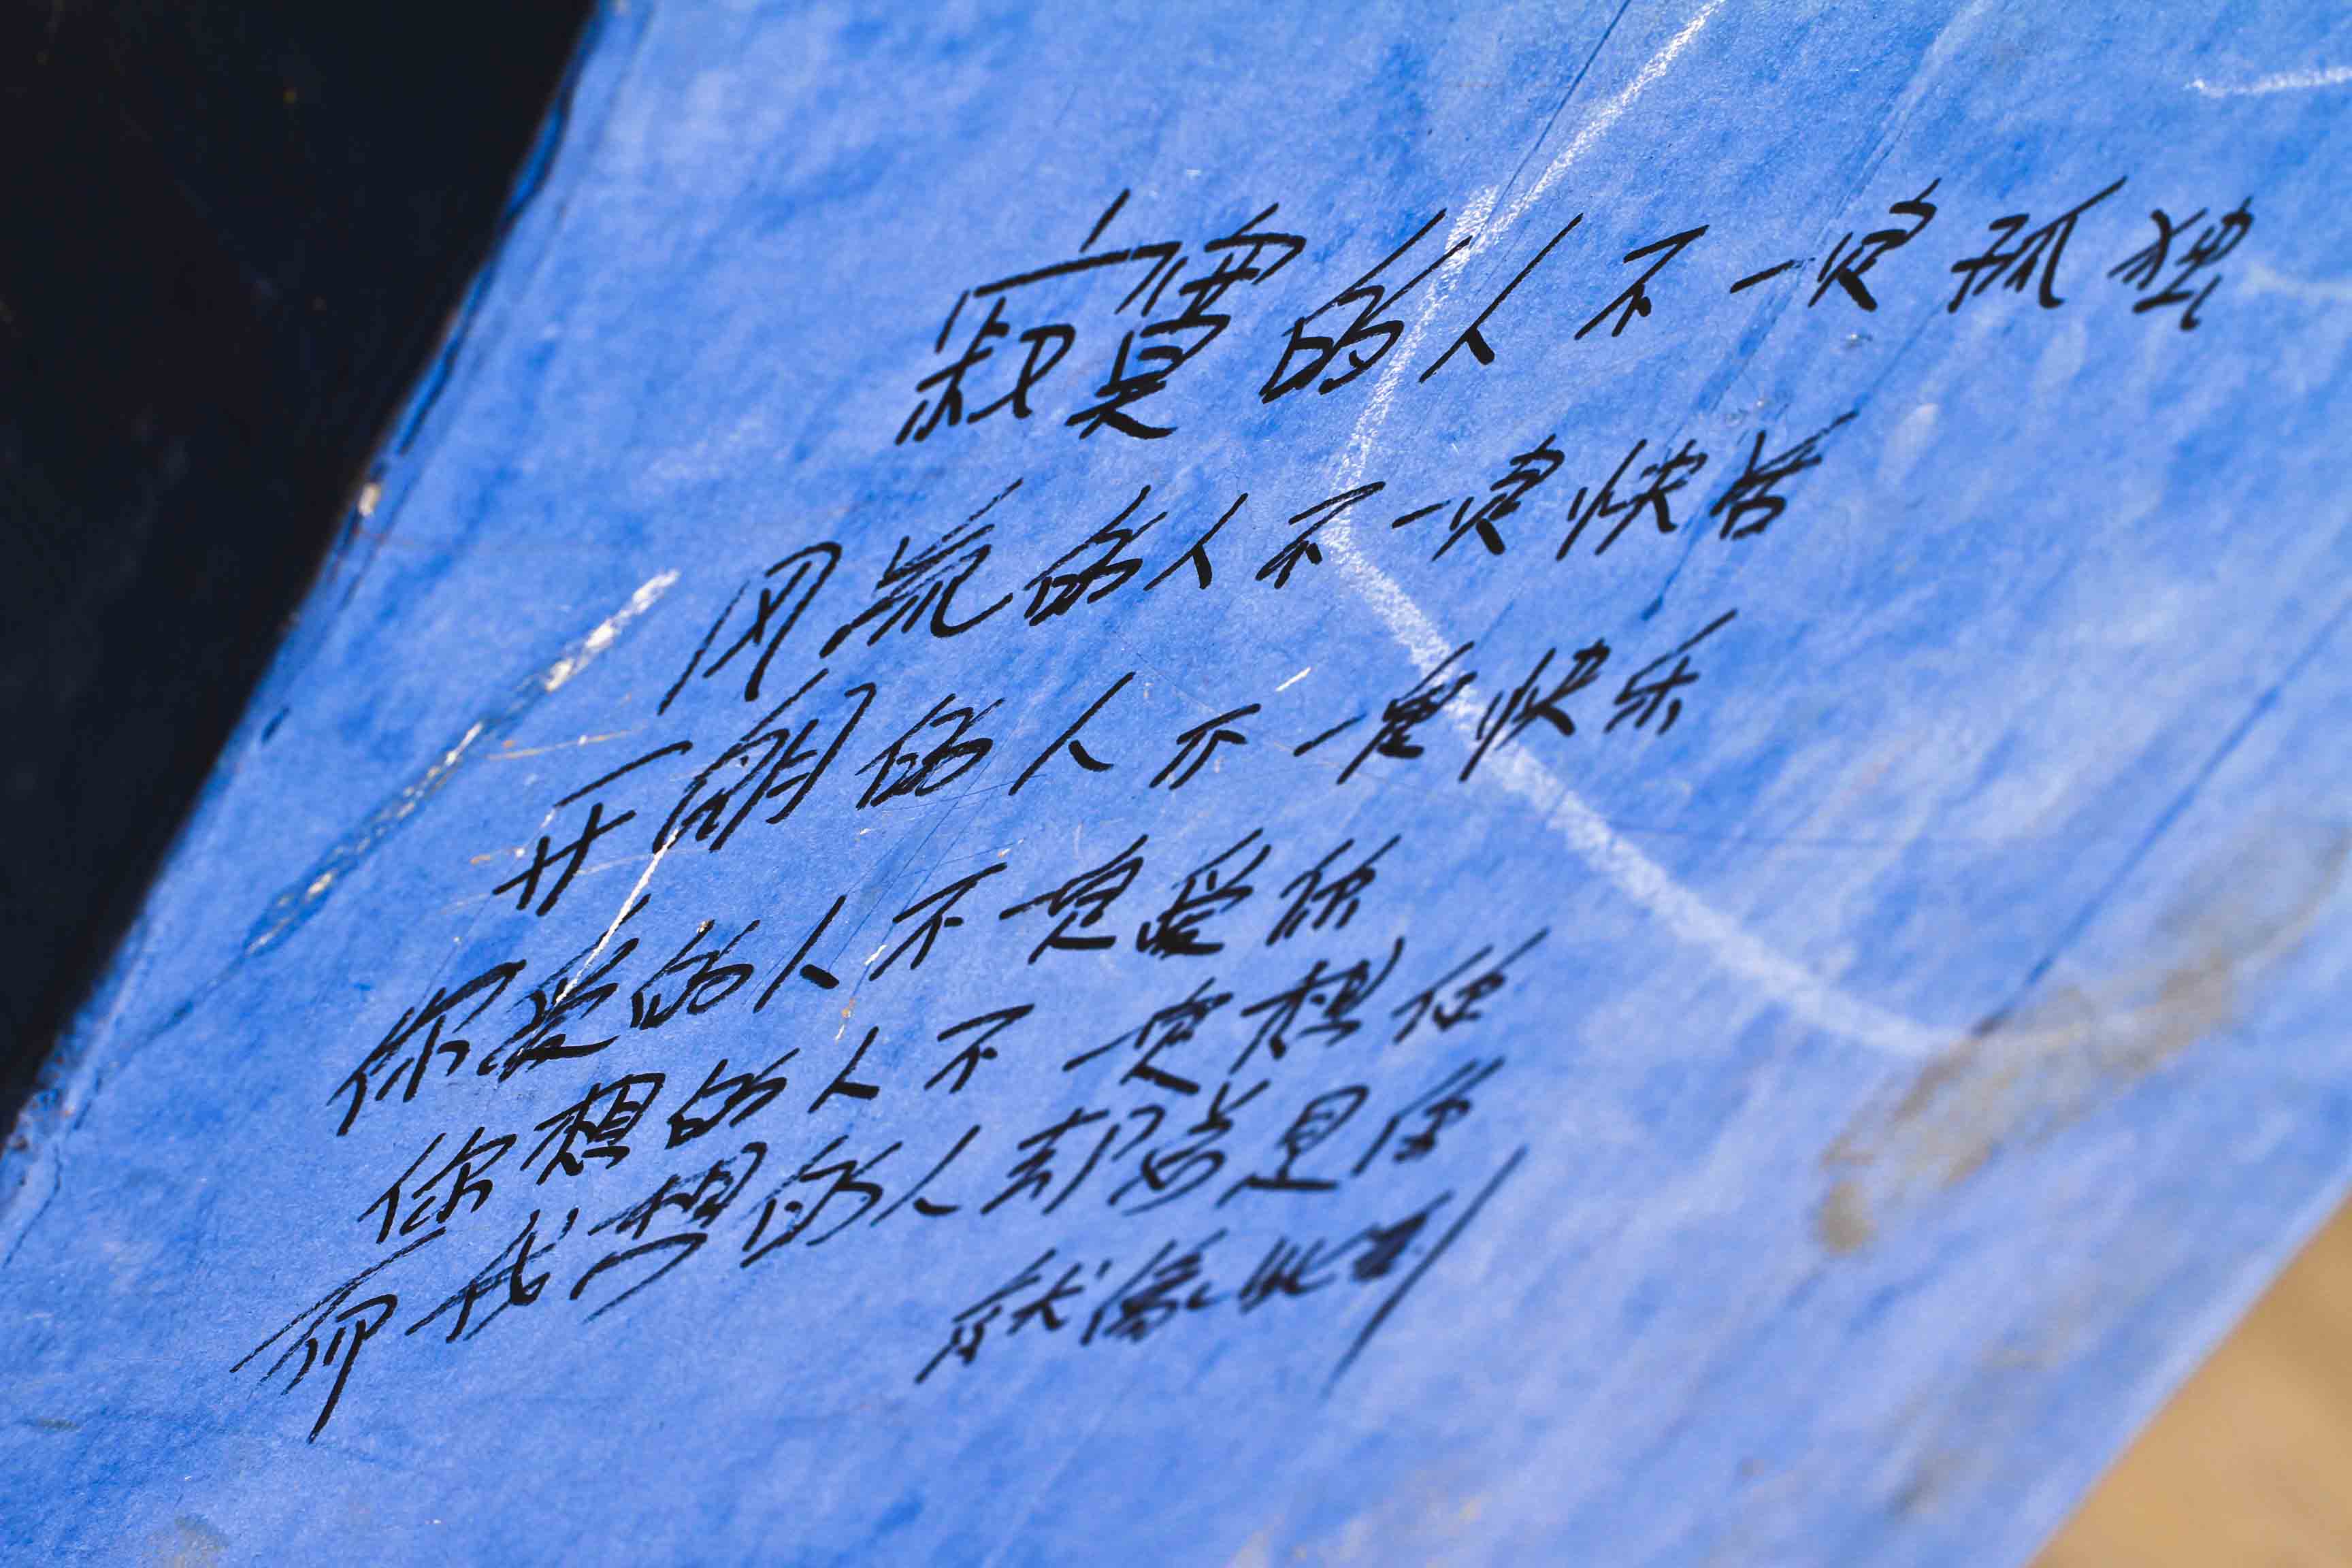 寂寞的人不一定孤独
风流的人不一定快活
开朗的人不一定快乐
你爱的人不一定爱你
你想的人不一定想你
而我想的人却总是你
就像此刻